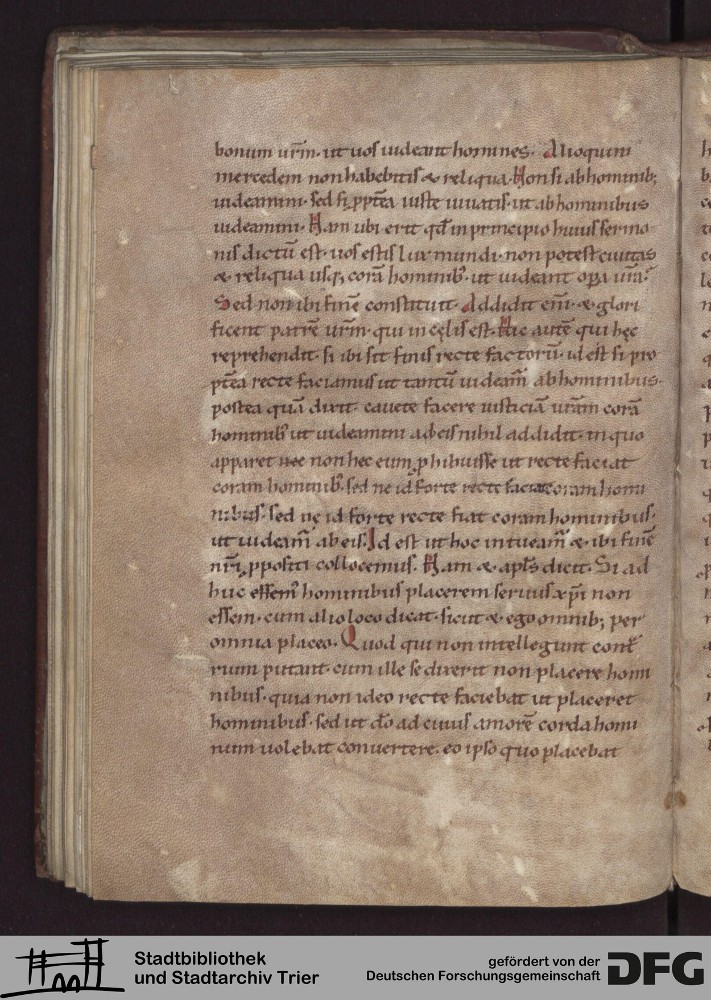 bonum urm̄. ut uos uideant homines. Alioquin
mercedem non habebitis & reliqua. Non si ab hominib;
uideamini. sed si ꝓpt̄ea iuste uiuatis. ut ab hominibus
uideamini. Nam ubi erit qđ in principio huius sermo
nis dictū est. uos estis lux mundi. non potest ciuitas
& reliqua usq; corā hominib. ut uideant oꝑa urā?
Sed non ibi finē constituit. Addidit eni. & glori
ficent patrē urm̄. qui in cęlis est. Hic autē qui hęc
reprehendit. si ibi sit finis recte factorū. id est si pro
pt̄ea recte faciamus ut tantū uideam̄ ab hominibus.
postea quā dixit. cauete facere iusticiā urām corā
hominib ut uideamini ab eis nihil addidit. in quo
apparet nec non hec eum ꝓhibuisse ut recte faciat
coram hominib. sed ne id forte recte faciat coram homi
nibus. sed ne id forte recte fiat coram hominibus.
ut uideam̄ ab eis. Id est ut hoc intueam̄ & ibi finē
nr̄i ꝓpositi collocemus. Nam & apl̄s dicit. Si ad
huc essem hominibus placerem seruus xp̄i non
essem. cum alio loco dicat. sicut & ego omnib; per
omnia placeo. Quod qui non intellegunt cont̄
rium putant. cum ille se dixerit non placere homi
nibus. quia non ideo recte faciebat ut placeret
hominibus. sed ut dō ad cuius amorē corda homi
num uolebat conuertere. eo ipso quo placebat
Stadtbibliothek
und Stadtarchiv Trier
gefördert von der
Deutschen Forschungsgemeinschaft
DFG